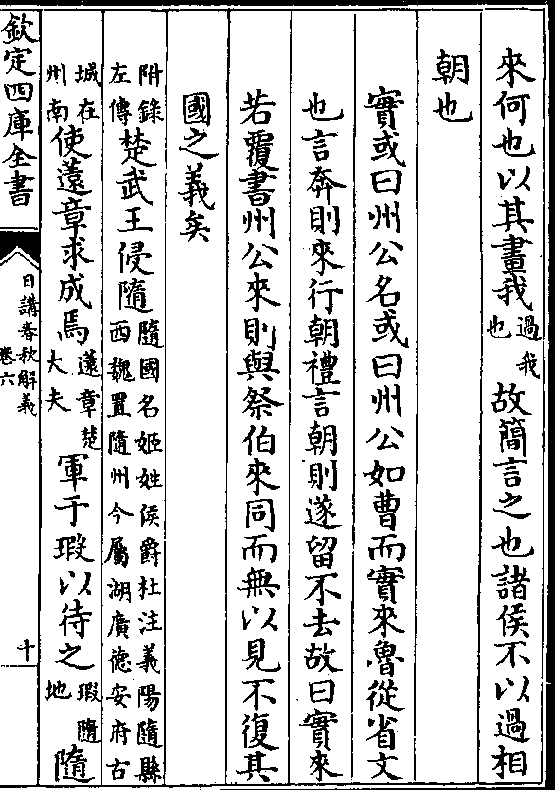 來何也以其畫我過我也故簡言之也諸侯不以過相
朝也
實或曰州公名或曰州公如曹而實來魯從省文
也言奔則來行朝禮言朝則遂留不去故曰實來
若覆書州公來則與祭伯來同而無以見不復其
國之義矣
附錄左傳楚武王侵隨隨國名姬姓侯爵杜注義陽隨縣西魏置隨州今屬湖廣德安府古
城在州南使薳章求成焉薳章楚大夫軍于瑕以待之瑕隨地隨
欽定四庫全書
日講春秋解義
卷六
十